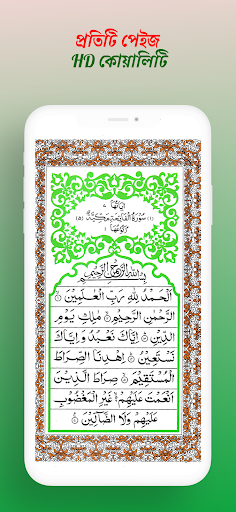 প্রতিটি পেইজ
HD কোয়ালিটি
اٰيَاتُهَا ٧
(١) سُوْرَةُ الْفَاتِحَةِ مَكِّيَّةٌ (٥)
رُكُوْعُهَا ١
بِسْمِ اللّٰهِ الرَّحْمٰنِ الرَّحِيْمِ
اَلْحَمْدُ لِلّٰهِ رَبِّ الْعٰلَمِيْنَ
الرَّحْمٰنِ الرَّحِيْمِ مٰلِكِ يَوْمِ
الدِّيْنِ اِيَّاكَ نَعْبُدُ وَ اِيَّاكَ
نَسْتَعِيْنُ اِهْدِنَا الصِّرَاطَ
الْمُسْتَقِيْمَ صِرَاطَ الَّذِيْنَ
اَنْعَمْتَ عَلَيْهِمْ غَيْرِ الْمَغْضُوْبِ
عَلَيْهِمْ وَلَا الضَّآلِّيْنَ